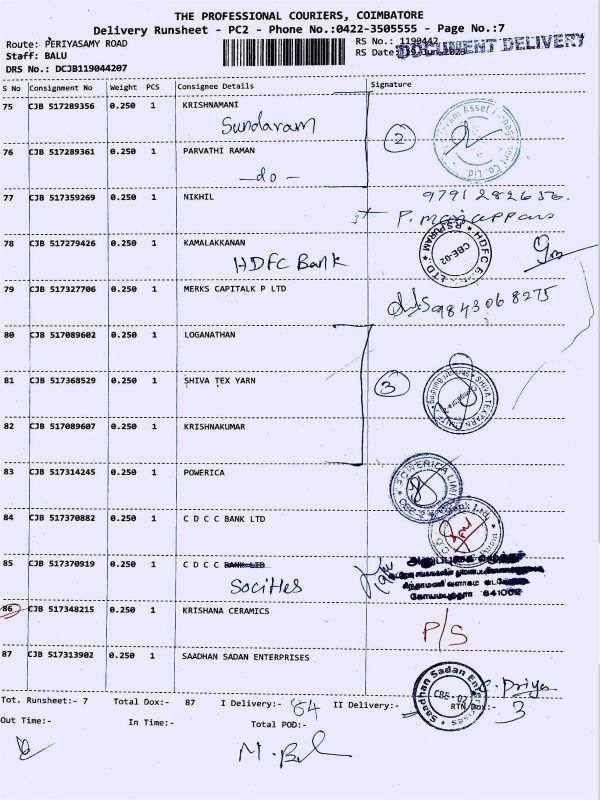 THE PROFESSIONAL COURIERS, COIMBATORE
Delivery Runsheet - PC2 - Phone No.:0422-3505555 - Page No.:7
Route: PERIYASAMY ROAD RS No.: 1190442 DOCUMENT DELIVERY
Staff: BALU RS Date:
DRS No.: DCJB119044207
S No Consignment No Weight PCS Consignee Details Signature
75 CJB 517289356 0.250 1 KRISHNAMANI
Sundaram 2
76 CJB 517289361 0.250 1 PARVATHI RAMAN
- do -
77 CJB 517359269 0.250 1 NIKHIL 9791282656.
78 CJB 517279426 0.250 1 KAMALAKKANAN
HDFC Bank HDFC BANK LTD. R.S.PURAM CBE-02
79 CJB 517327706 0.250 1 MERKS CAPITALK P LTD
9843068275
80 CJB 517089602 0.250 1 LOGANATHAN
81 CJB 517368529 0.250 1 SHIVA TEX YARN 3
SHIVA TEXYARN LIMITED
82 CJB 517089607 0.250 1 KRISHNAKUMAR
83 CJB 517314245 0.250 1 POWERICA POWERICA LIMITED
84 CJB 517370882 0.250 1 C D C C BANK LTD
85 CJB 517370919 0.250 1 C D C C BANK LTD
Socities
சிந்தாமணி வளாகம் வடகோவை
கோயமுத்தூர் 641002
86 CJB 517348215 0.250 1 KRISHANA CERAMICS P/S
87 CJB 517313902 0.250 1 SAADHAN SADAN ENTERPRISES
Saadhan Sadan Enterprises CBE - 02 Priya
Tot. Runsheet:- 7 Total Dox:- 87 I Delivery:- 84 II Delivery:- RTN Dox:- 3
Out Time:- In Time:- Total POD:-